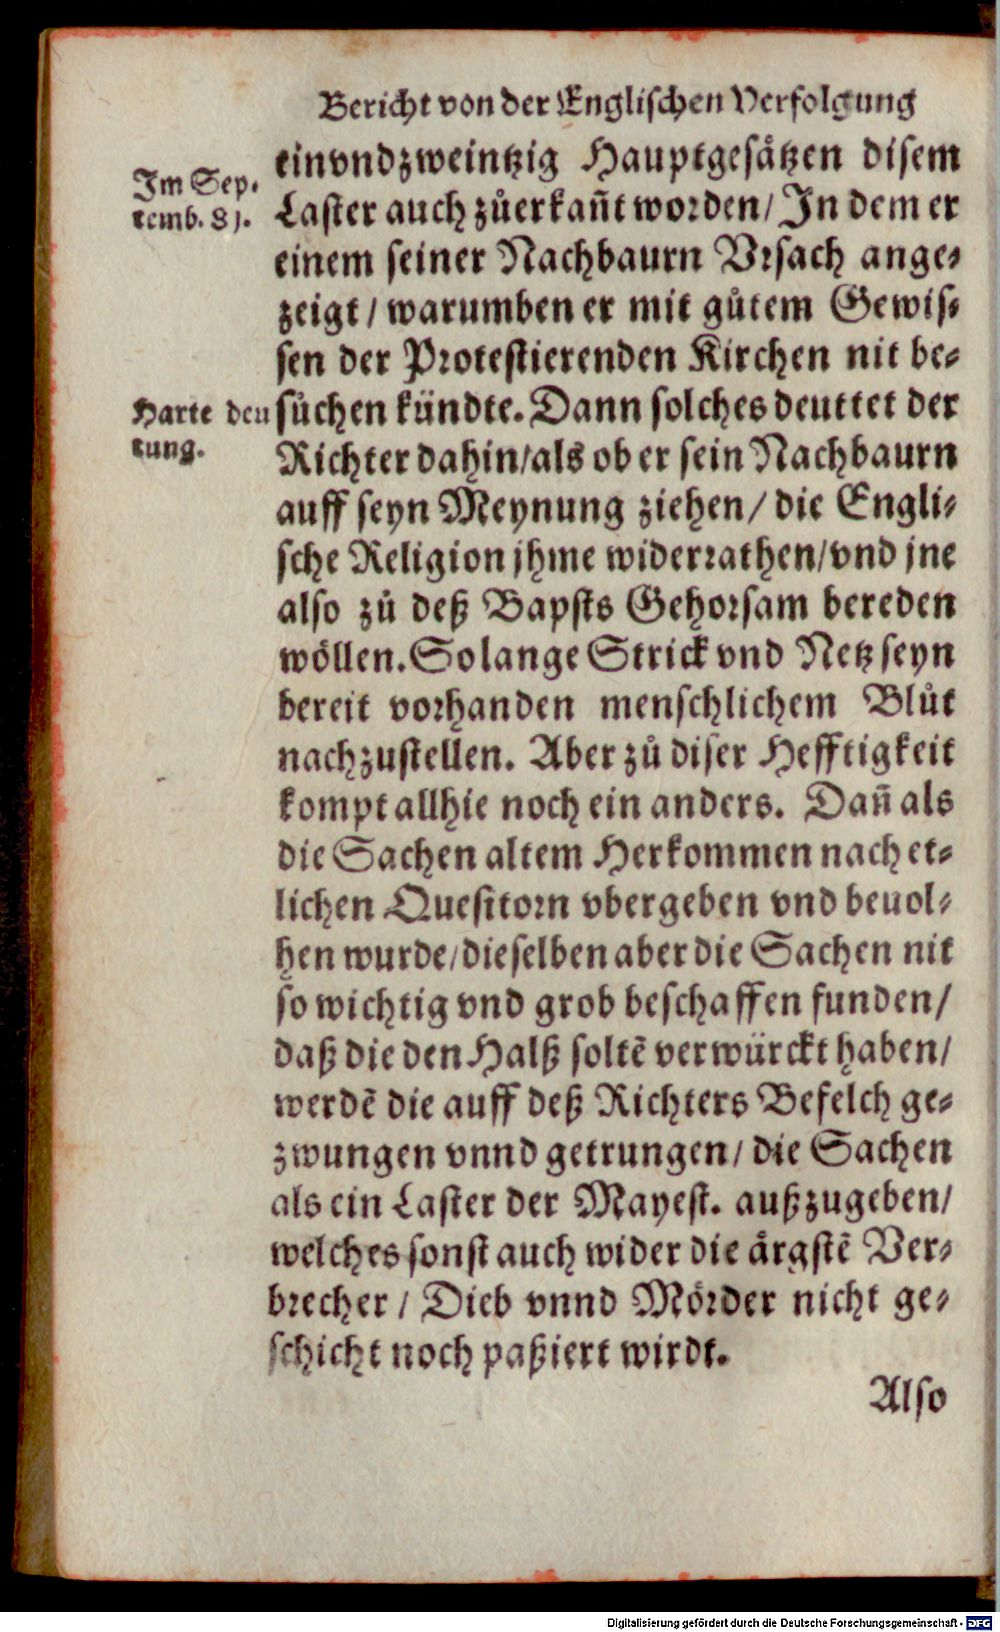 Bericht von der Englischen Verfolgung
einvndzweintzig Hauptgesätzen disem
Im Sep-
temb. 81.
Laster auch zůerkañt worden/ In dem er
einem seiner Nachbaurn Vrsach ange-
zeigt/ warumben er mit gůtem Gewis-
sen der Protestierenden Kirchen nit be-
Harte deu
tung.
sůchen kündte. Dann solches deuttet der
Richter dahin/als ob er sein Nachbaurn
auff seyn Meynung ziehen/ die Engli-
sche Religion jhme widerrathen/vnd jne
also zů deß Bapsts Gehorsam bereden
wöllen. So lange Strick vnd Netz seyn
bereit vorhanden menschlichem Blůt
nachzustellen. Aber zů diser Hefftigkeit
kompt allhie noch ein anders. Dañ als
die Sachen altem Herkommen nach et-
lichen Quesitorn vbergeben vnd beuol-
hen wurde/dieselben aber die Sachen nit
so wichtig vnd grob beschaffen funden/
daß die den Halß soltẽ verwürckt haben/
werdẽ die auff deß Richters Befelch ge-
zwungen vnnd getrungen/ die Sachen
als ein Laster der Mayest. außzugeben/
welches sonst auch wider die ärgstẽ Ver-
brecher/ Dieb vnnd Mörder nicht ge-
schicht noch paßiert wirdt.
Also
Digitalisierung gefördert durch die Deutsche Forschungsgemeinschaft - DFG